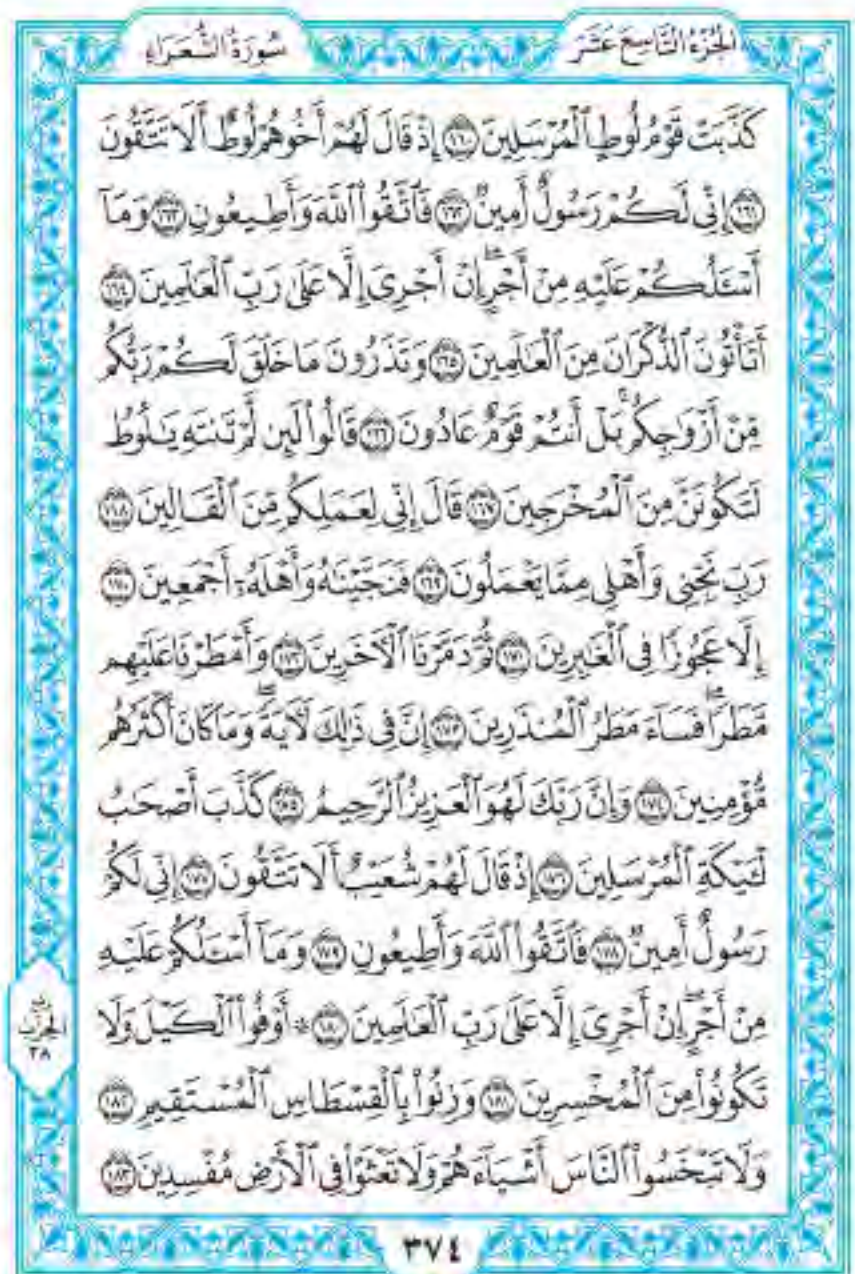 الجُزْءُ التَّاسِعَ عَشَرَ
سُورَةُ الشُّعَرَاءِ
كَذَّبَتْ قَوْمُ لُوطٍ ٱلْمُرْسَلِينَ ١٦٠ إِذْ قَالَ لَهُمْ أَخُوهُمْ لُوطٌ أَلَا تَتَّقُونَ
١٦١ إِنِّي لَكُمْ رَسُولٌ أَمِينٌ ١٦٢ فَٱتَّقُوا۟ ٱللَّهَ وَأَطِيعُونِ ١٦٣ وَمَآ
أَسْـَٔلُكُمْ عَلَيْهِ مِنْ أَجْرٍ ۖ إِنْ أَجْرِىَ إِلَّا عَلَىٰ رَبِّ ٱلْعَٰلَمِينَ ١٦٤
أَتَأْتُونَ ٱلذُّكْرَانَ مِنَ ٱلْعَٰلَمِينَ ١٦٥ وَتَذَرُونَ مَا خَلَقَ لَكُمْ رَبُّكُم
مِّنْ أَزْوَٰجِكُم ۚ بَلْ أَنتُمْ قَوْمٌ عَادُونَ ١٦٦ قَالُوا۟ لَئِن لَّمْ تَنتَهِ يَٰلُوطُ
لَتَكُونَنَّ مِنَ ٱلْمُخْرَجِينَ ١٦٧ قَالَ إِنِّى لِعَمَلِكُم مِّنَ ٱلْقَالِينَ ١٦٨
رَبِّ نَجِّنِى وَأَهْلِى مِمَّا يَعْمَلُونَ ١٦٩ فَنَجَّيْنَٰهُ وَأَهْلَهُۥٓ أَجْمَعِينَ ١٧٠
إِلَّا عَجُوزًا فِى ٱلْغَٰبِرِينَ ١٧١ ثُمَّ دَمَّرْنَا ٱلْءَاخَرِينَ ١٧٢ وَأَمْطَرْنَا عَلَيْهِم
مَّطَرًا ۖ فَسَآءَ مَطَرُ ٱلْمُنذَرِينَ ١٧٣ إِنَّ فِى ذَٰلِكَ لَءَايَةً ۖ وَمَا كَانَ أَكْثَرُهُم
مُّؤْمِنِينَ ١٧٤ وَإِنَّ رَبَّكَ لَهُوَ ٱلْعَزِيزُ ٱلرَّحِيمُ ١٧٥ كَذَّبَ أَصْحَٰبُ
لْـَٔيْكَةِ ٱلْمُرْسَلِينَ ١٧٦ إِذْ قَالَ لَهُمْ شُعَيْبٌ أَلَا تَتَّقُونَ ١٧٧ إِنِّى لَكُمْ
رَسُولٌ أَمِينٌ ١٧٨ فَٱتَّقُوا۟ ٱللَّهَ وَأَطِيعُونِ ١٧٩ وَمَآ أَسْـَٔلُكُمْ عَلَيْهِ
مِنْ أَجْرٍ ۖ إِنْ أَجْرِىَ إِلَّا عَلَىٰ رَبِّ ٱلْعَٰلَمِينَ ١٨٠ ۞ أَوْفُوا۟ ٱلْكَيْلَ وَلَا
تَكُونُوا۟ مِنَ ٱلْمُخْسِرِينَ ١٨١ وَزِنُوا۟ بِٱلْقِسْطَاسِ ٱلْمُسْتَقِيمِ ١٨٢
وَلَا تَبْخَسُوا۟ ٱلنَّاسَ أَشْيَآءَهُمْ وَلَا تَعْثَوْا۟ فِى ٱلْأَرْضِ مُفْسِدِينَ ١٨٣
الحزب
٣٨
٣٧٤